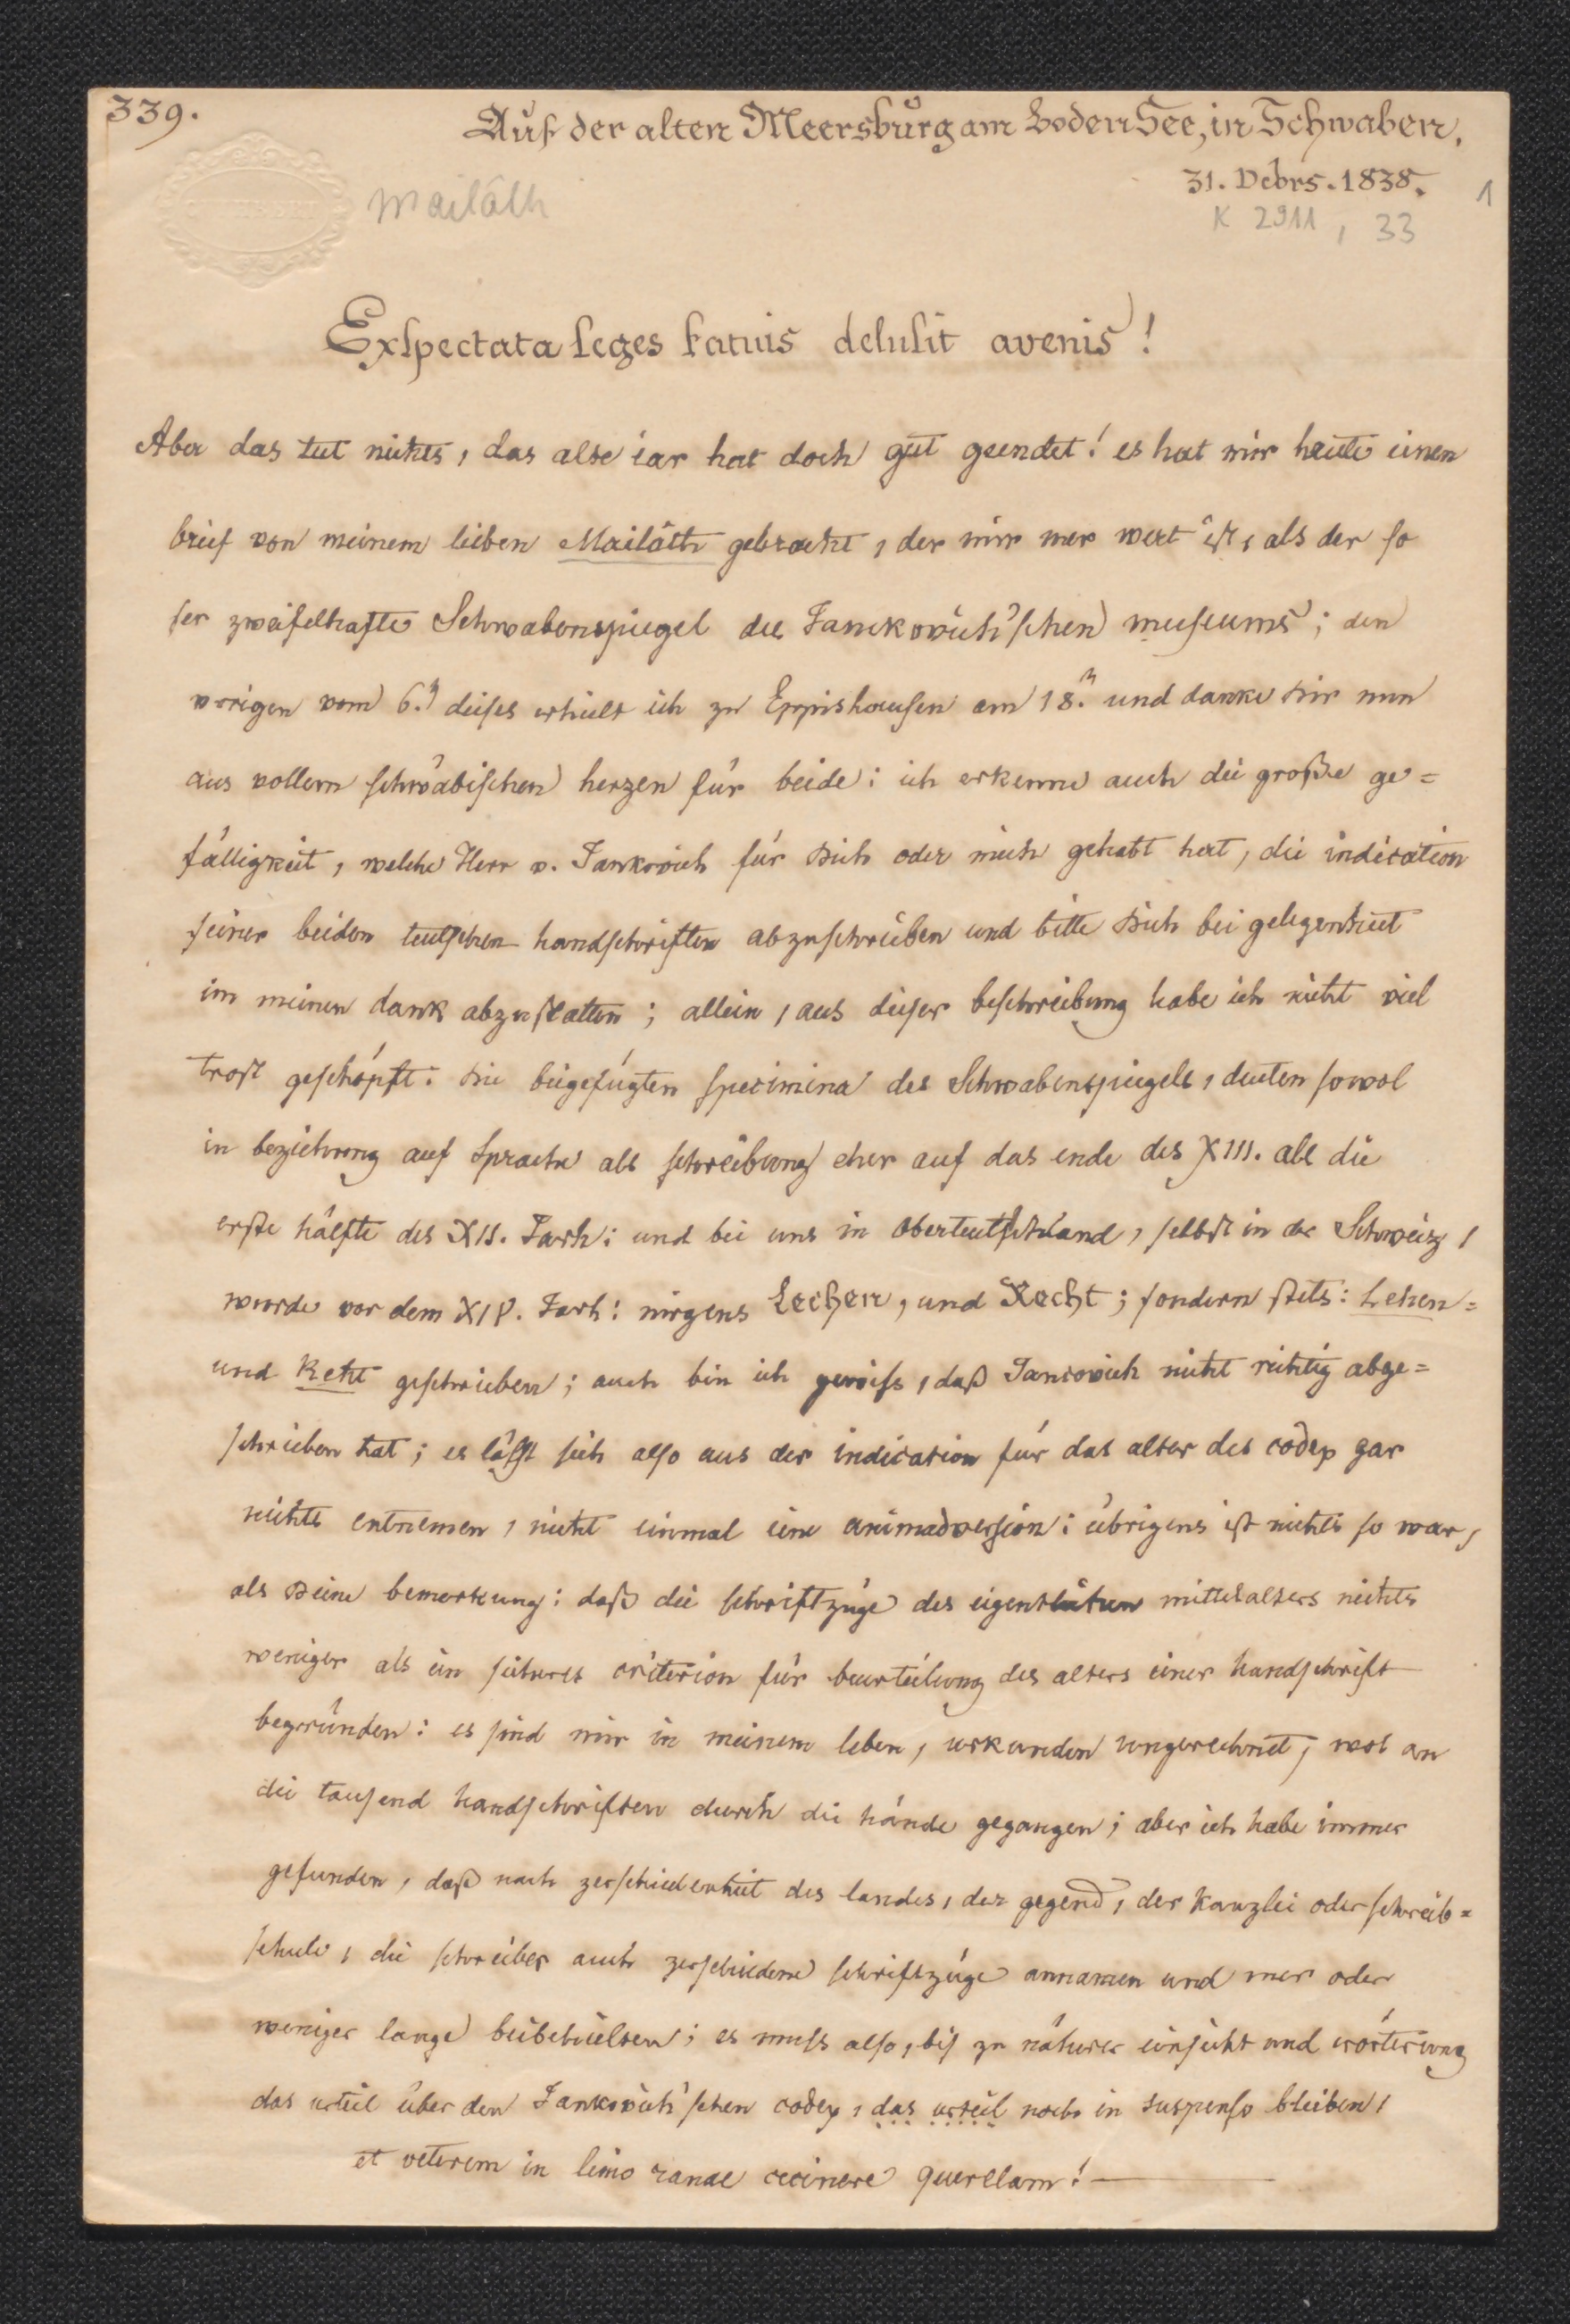 339.
Auf der alten Meersburg am BodenSee, in Schwaben.
31. Debrs. 1838.
1
Mailáth
K 2911, 33
Exspectata seges fatuis delusit avenis!
Aber das tut nichts, das alte iar hat doch gut geendet! es hat mir heute einen
brief von meinem lieben Mailáth gebracht, der mir mer wert ist, als der so
ser zweifelhafte Schwabenspiegel des Janckovich'schen museums; den
vorigen vom 6.n dieses erhielt ich zu Eppishausen am 18.n und danke Dir nun
aus vollem schwäbischen herzen für beide: ich erkenne auch die große ge=
fälligkeit, welche Herr v. Jankovich für Dich oder mich gehabt hat, die indication
seiner beiden teutschen handschriften abzuschreiben und bitte Dich bei gelegenheit
im meinen dank abzustatten; allein, aus dieser beschreibung habe ich nicht viel
trost geschöpft. Die beigefügten specimina des Schwabenspiegels, deuten sowol
in beziehung auf Sprache als schreibung eher auf das ende des XIII. als die
erste hälfte des XII. Jarh: und bei uns in Oberteutschland, selbst in der Schweiz,
wurde vor dem XIV. Jarh: nirgens Lechen, und Recht; sondern stets: Lehen=
und Reht geschrieben; auch bin ich gewiss, daß Jancovich nicht richtig abge=
schrieben hat; es lässt sich also aus der indication für das alter des codex gar
nichts entnemen, nicht einmal eine animadversion: übrigens ist nichts so war,
als Deine bemerkung: daß die schriftzüge des eigentlichen mittelalters nichts
weniger als ein sicheres criterion für beurteilung des alters einer handschrift
begründen: es sind mir in meinem leben, urkunden ungerechnet, wol an
die tausend handschriften durch die hände gegangen; aber ich habe immer
gefunden, daß nach zerschiedenheit des landes, der gegend, der Kanzlei oder schreib=
schule, die schreiber auch zerschiedene schriftzüge annamen und mer oder
weniger lange beibehielten; es muss also, bis zu näherer einsicht und erörterung
das urteil über den Jankovich'schen codex, das urteil noch in suspenso bleiben,
et veterem in limo ranae cecinere querelam! —